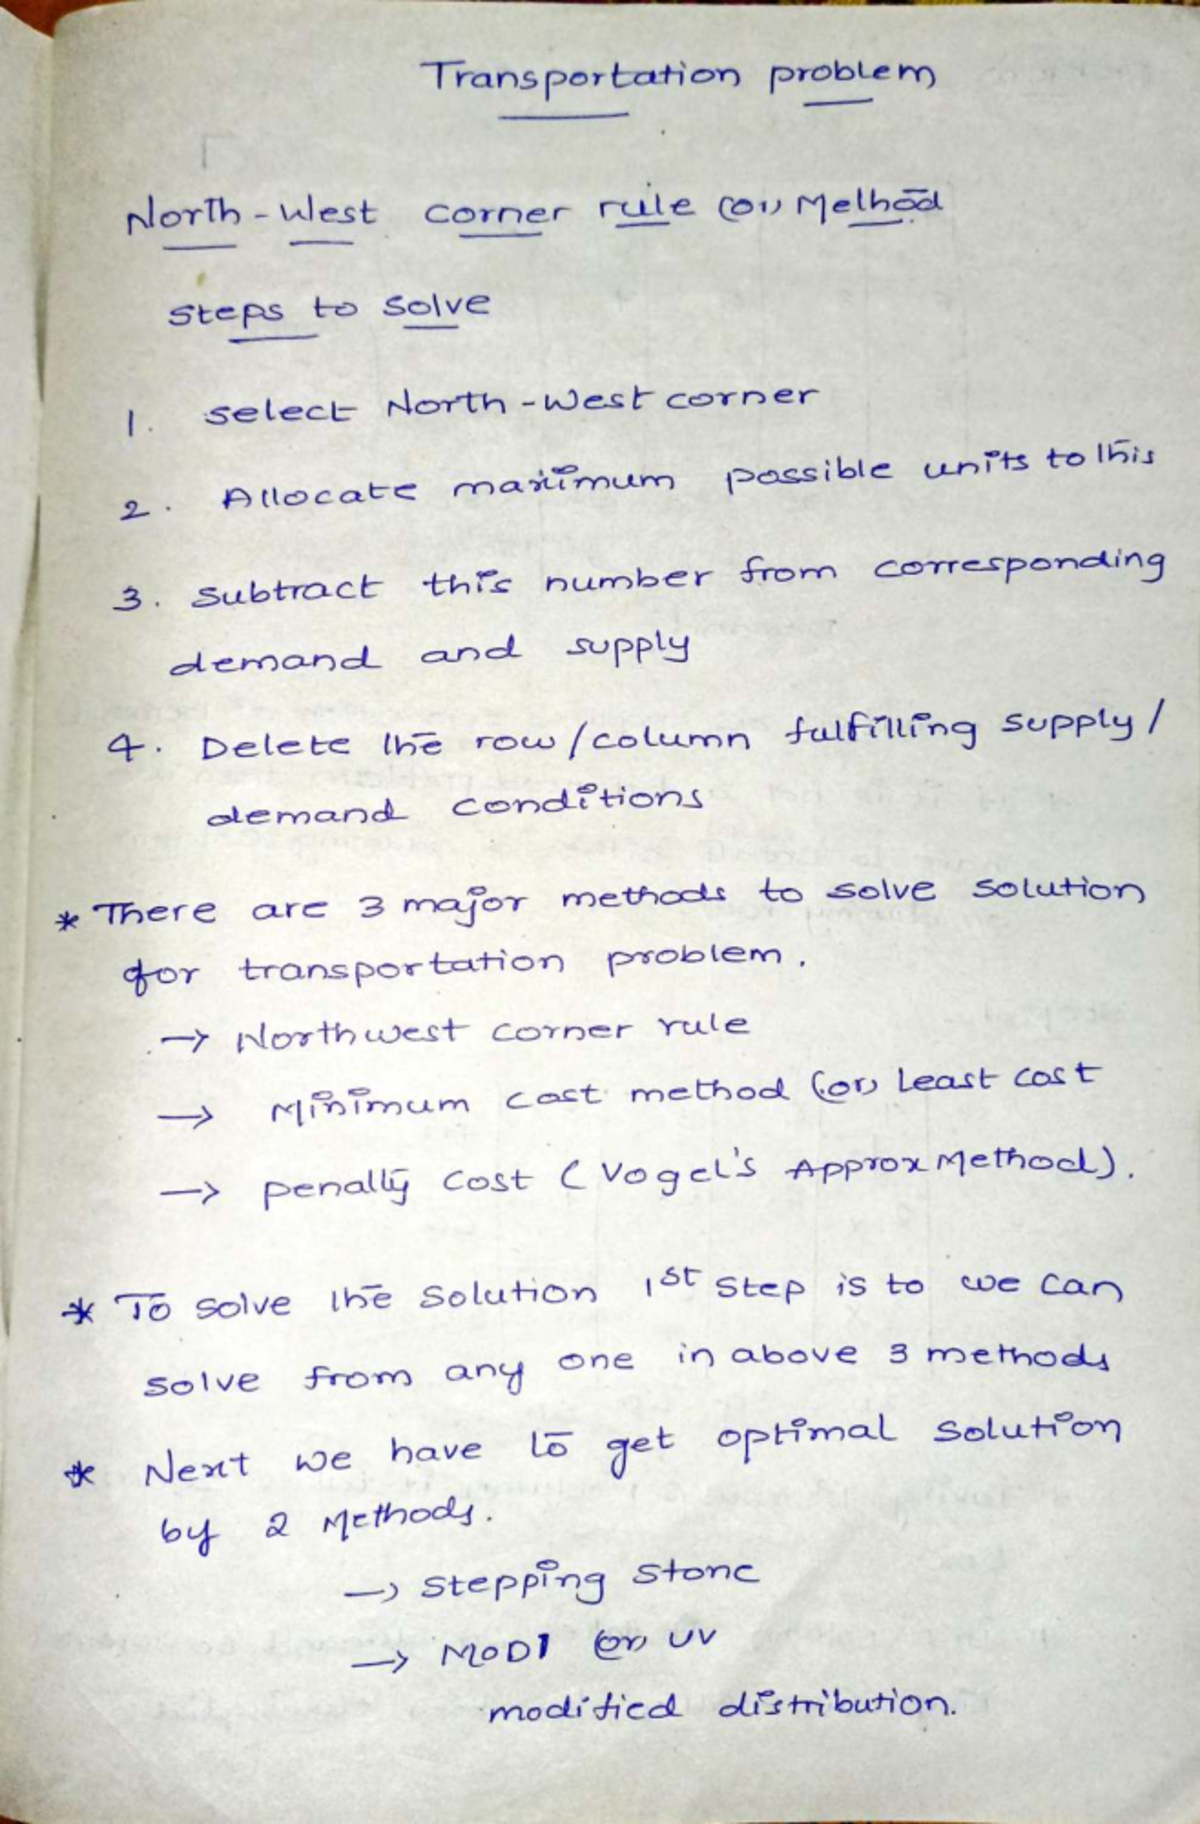 Transportation problem
North-West corner rule (or) Method
steps to solve
1. select North-West corner
2. Allocate maximum possible units to this
3. subtract this number from corresponding
demand and supply
4. Delete the row/column fulfilling supply/
demand conditions
* There are 3 major methods to solve solution
for transportation problem.
→ Northwest corner rule
→ Minimum cost method (or) Least cost
→ penalty cost (Vogel's Approx Method).
* To solve the solution 1st step is to we can
solve from any one in above 3 methods
* Next we have to get optimal solution
by 2 Methods.
→ stepping stone
→ MODI (or) UV
modified distribution.